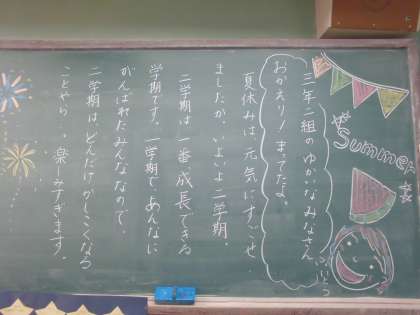 三年二組のゆかいなみなさん
おかえり!まってたよ。
夏休みは元気にすごせ
ましたか。いよいよ二学期。
二学期は一番成長できる
学期です。一学期であんなに
がんばれたみんななので、
二学期はどんだけかしこくなる
ことやら…。楽しみすぎます。
Summer